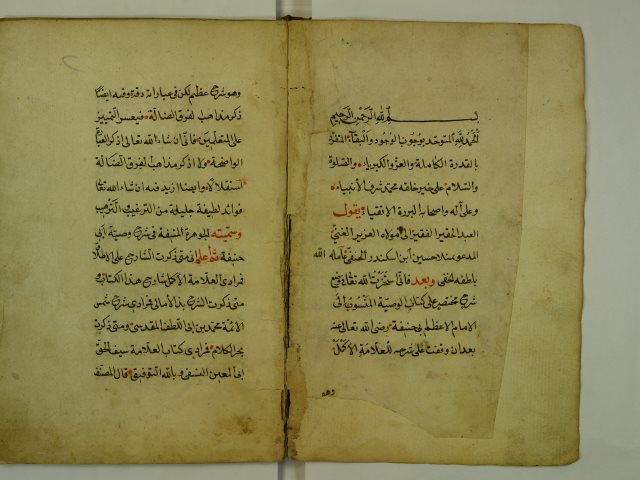 بسم الله الرحمن الرحيم
الحمد لله المتوحد بوجوب الوجود والبقاء المتفرد
بالقدرة الكاملة والعز والكبرياء والصلوة
والسلام على خير خلقه محمد شرف الأنبياء
وعلى اله واصحابه البررة الاتقياء يقول
العبد الحقير الفقير الى مولاه العزيز الغني
المدعو بملا حسين ابن اسكندر الحنفي عامله الله
بلطفه الخفي وبعد فاني الله تعالى في
شرح مختصر على كتاب الوصية المنسوب الى
الامام الاعظم ابي حنيفة رضي الله تعالى عنه
بعد ان وقفت على شرحه للعلامة الأكمل
وهو
وهو شرح عظيم لكن في عباراته دقة وفيه ايضا
ذكر مذاهب الفرق الضالة فيعسر التمييز
على المتعلمين فاني ان شاء الله تعالى اذكر العبارة
الواضحة ولا اذكر مذاهب الفرق الضالة
استقلالا وايضا ازيد فيه ان شاء الله تعالى
فوائد لطيفة جليلة من الترغيب والترهيب
وسميته الجوهرة المنيفة في شرح وصية أبي
حنيفة ثم اعلم اني متى ذكرت الشارح على الاطلاق
فمرادي العلامة الأكمل شارح هذا الكتاب و
متى ذكرت الشرح بدء الامالي فمرادي شرح شمس
الائمة محمد بن ابي اللطف المقدسي ومتى ذكرت
بحر الكلام فمرادي كتاب العلامة سيف الحق
ابي المعين النسفي وبالله التوفيق قال المصنف